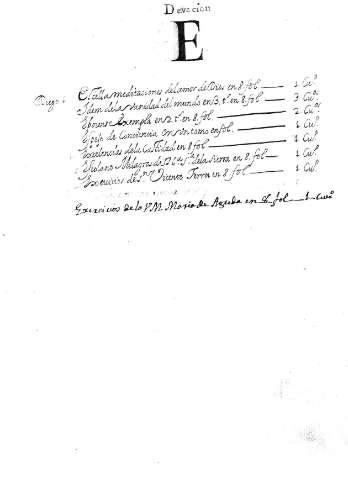 Devocion
E
Diego. Estella meditaciones del amor de Dios en 8. fol. 1 Cuº
Idem de la Vanidad del mundo en 3. tº en 8. fol. 3 Cuº
exempla en 2 tº en 8. fol. 2 Cuº
de Conciencia con un tomo en fol. 1 Cuº
Excelencias de la Castidad en 8 fol 1 Cuº
Milagros de Nª Sª de la Sierra en 8. fol 1 Cuº
Exercicios de Sⁿ Vicente Ferrer en 8 fol 1 Cuº
Exercicios de la V. M. Maria de Agreda en 8 fol 1 Cuº